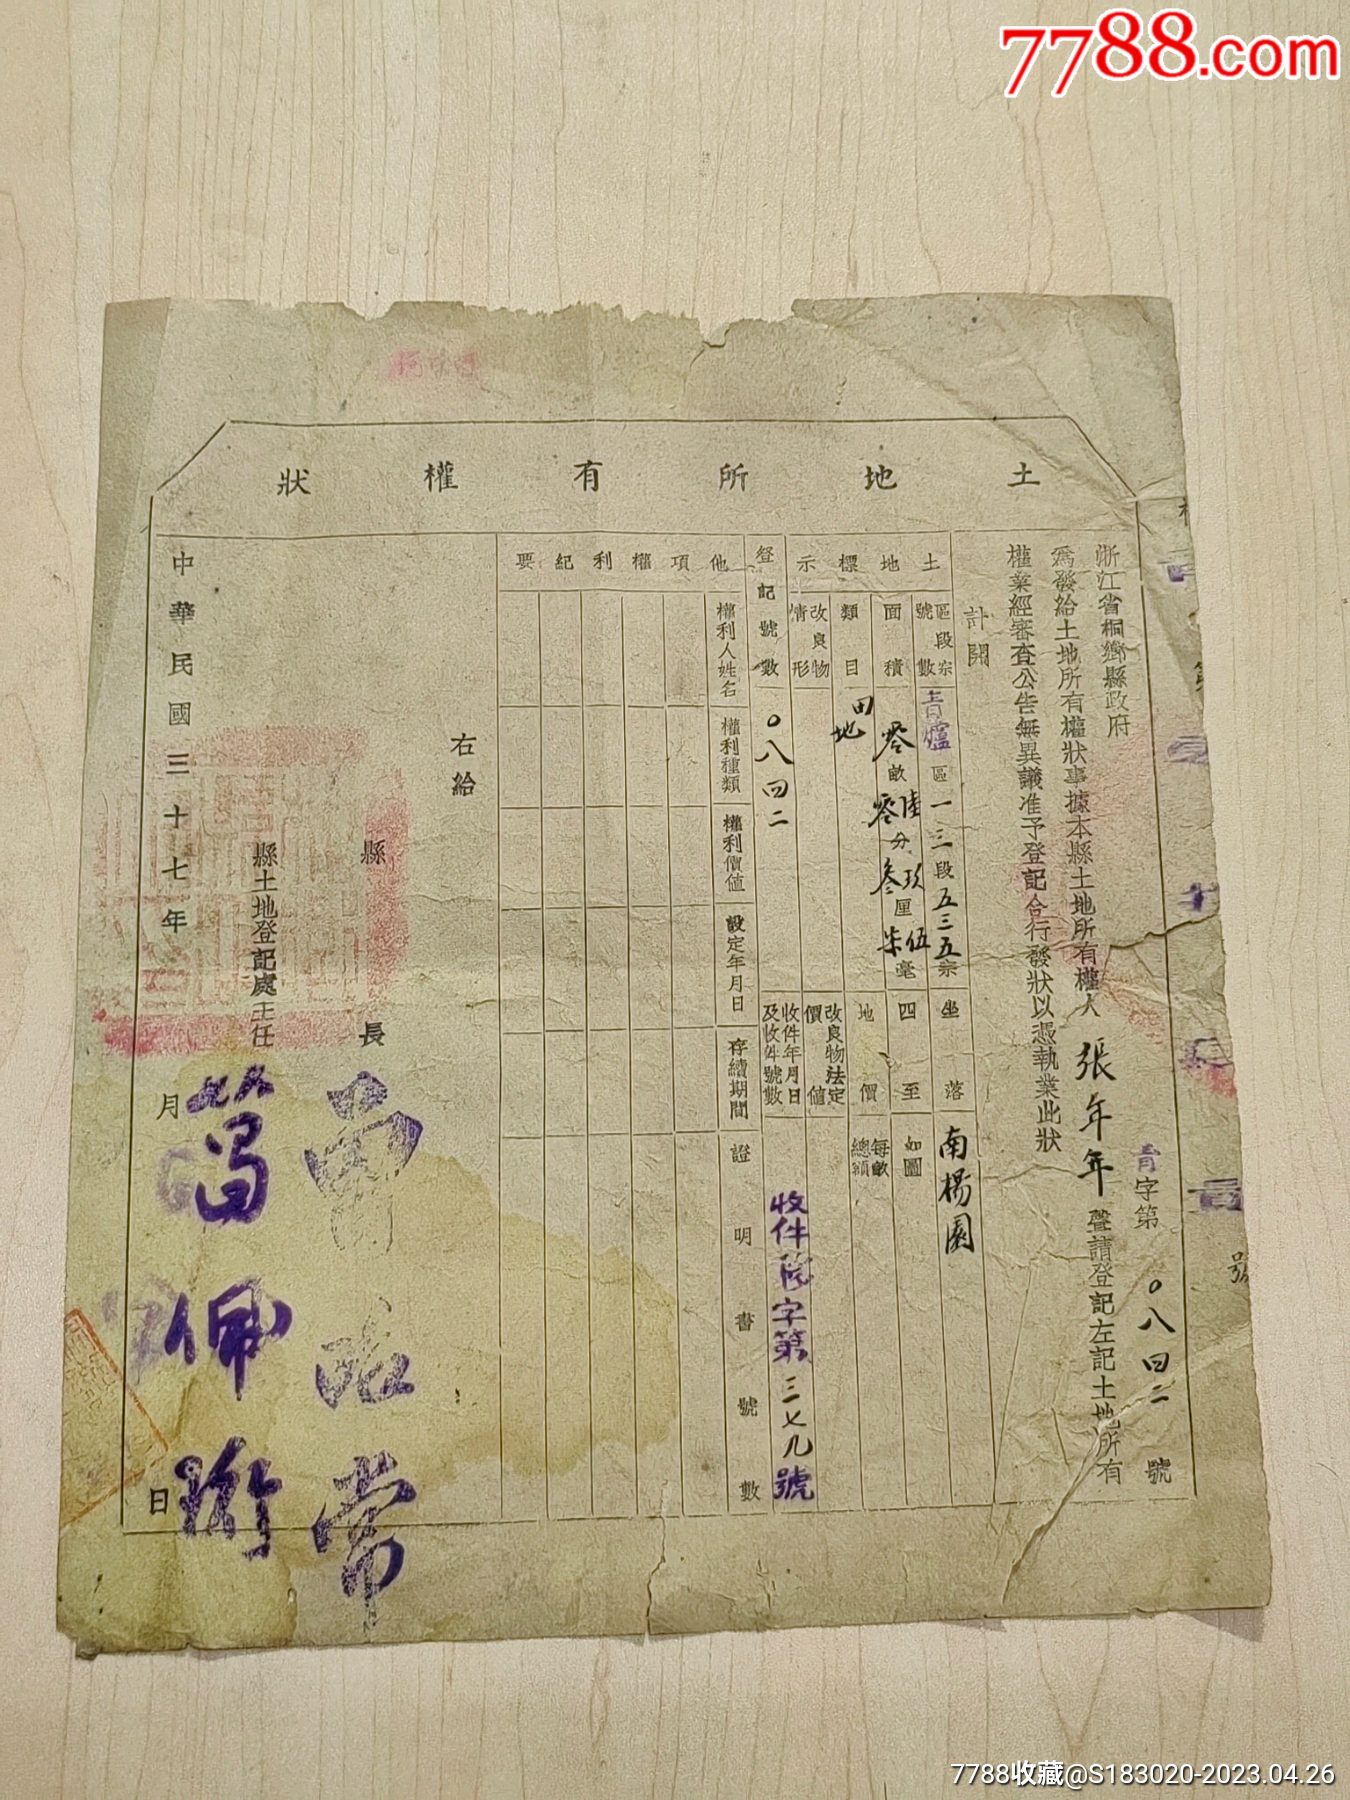 7788.com
土地所有權狀
青字第〇八四二號
浙江省桐鄉縣政府
爲發給土地所有權狀事據本縣土地所有權人張年年聲請登記左記土地所有
權業經審查公告無異議准予登記合行發狀以憑執業此狀
計開
土地標示
區段宗號數
青爐區一三段五三五宗
坐落
南楊園
面積
陸玖伍
零畝零分叁厘柒毫
四至
如圖
類目
田
地
地價
每畝
總額
改良物情形
改良物法定價值
登記號數
〇八四二
收件年月日及收件號數
收件 字第三七九號
他項權利紀要
權利人姓名
權利種類
權利價值
設定年月日
存續期間
證明書號數
右給
縣長
縣土地登記處主任
中華民國三十七年月日
號
7788收藏@S183020-2023.04.26